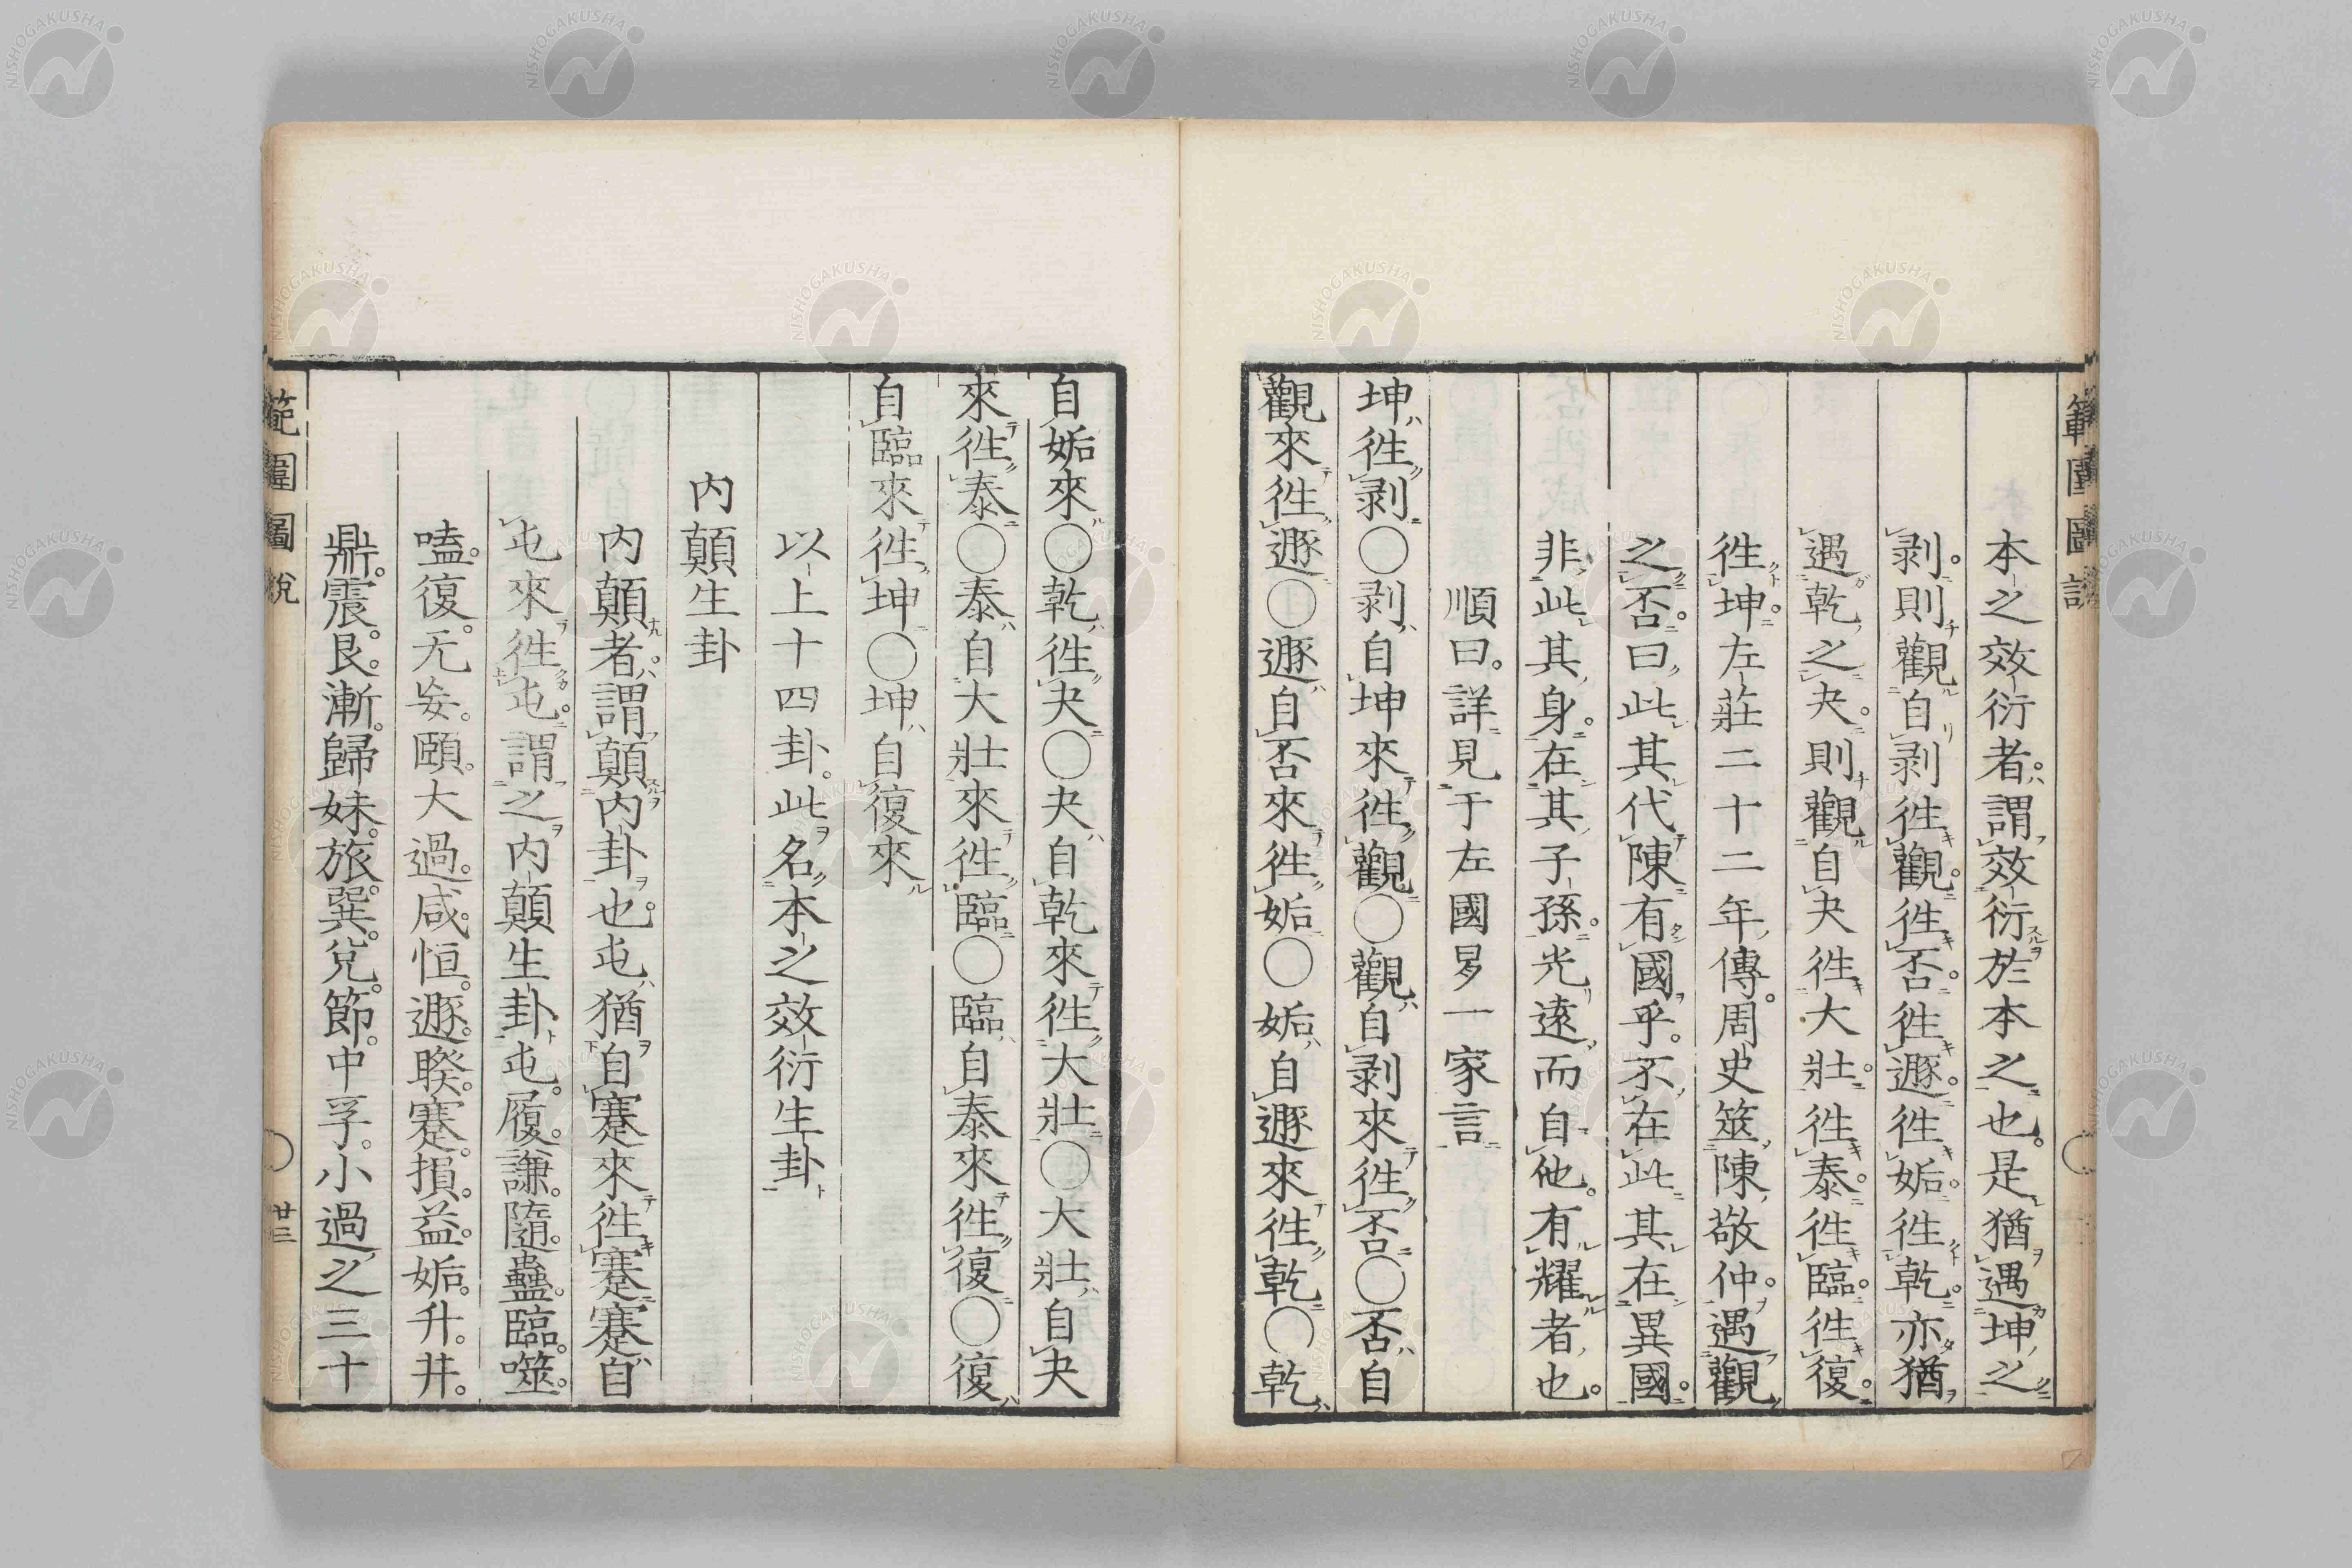 範圍圖說
本之效衍者。謂效衍於本之也。是猶遇坤之
剥。則觀自剥徃觀。徃否。徃遯。徃姤。徃乾。亦猶
遇乾之夬。則觀自夬徃大壯。徃泰。徃臨。徃復。
徃坤。左莊二十二年傳。周史筮陳敬仲。遇觀
之否。曰此其代陳有國乎。不在此其在異國。
非此其身。在其子孫。光遠而自他。有耀者也。
順曰。詳見于左國易一家言
坤徃剥○剥自坤來徃觀○觀自剥來徃否○否自
觀來徃遯○遯自否來徃姤○姤自遯來徃乾○乾
自姤來○乾徃夬○夬自乾來徃大壯○大壯自夬
來徃泰○泰自大壯來徃臨○臨自泰來徃復○復
自臨來徃坤○坤自復來
以上十四卦。此名本之效衍生卦
内顛生卦
内顛者。謂顛内卦也。屯猶自蹇來徃蹇蹇自
屯來徃屯。謂之内顛生卦屯。履。謙。隨。蠱。臨。噬
嗑。復。无妄。頤。大過。咸。恒。遯。睽。蹇。損。益。姤。升。井。
鼎。震。艮。漸。歸妹。旅。巽。兌。節。中孚。小過之三十
範圍圖說
○
廿三
NISHOGAKUSHA